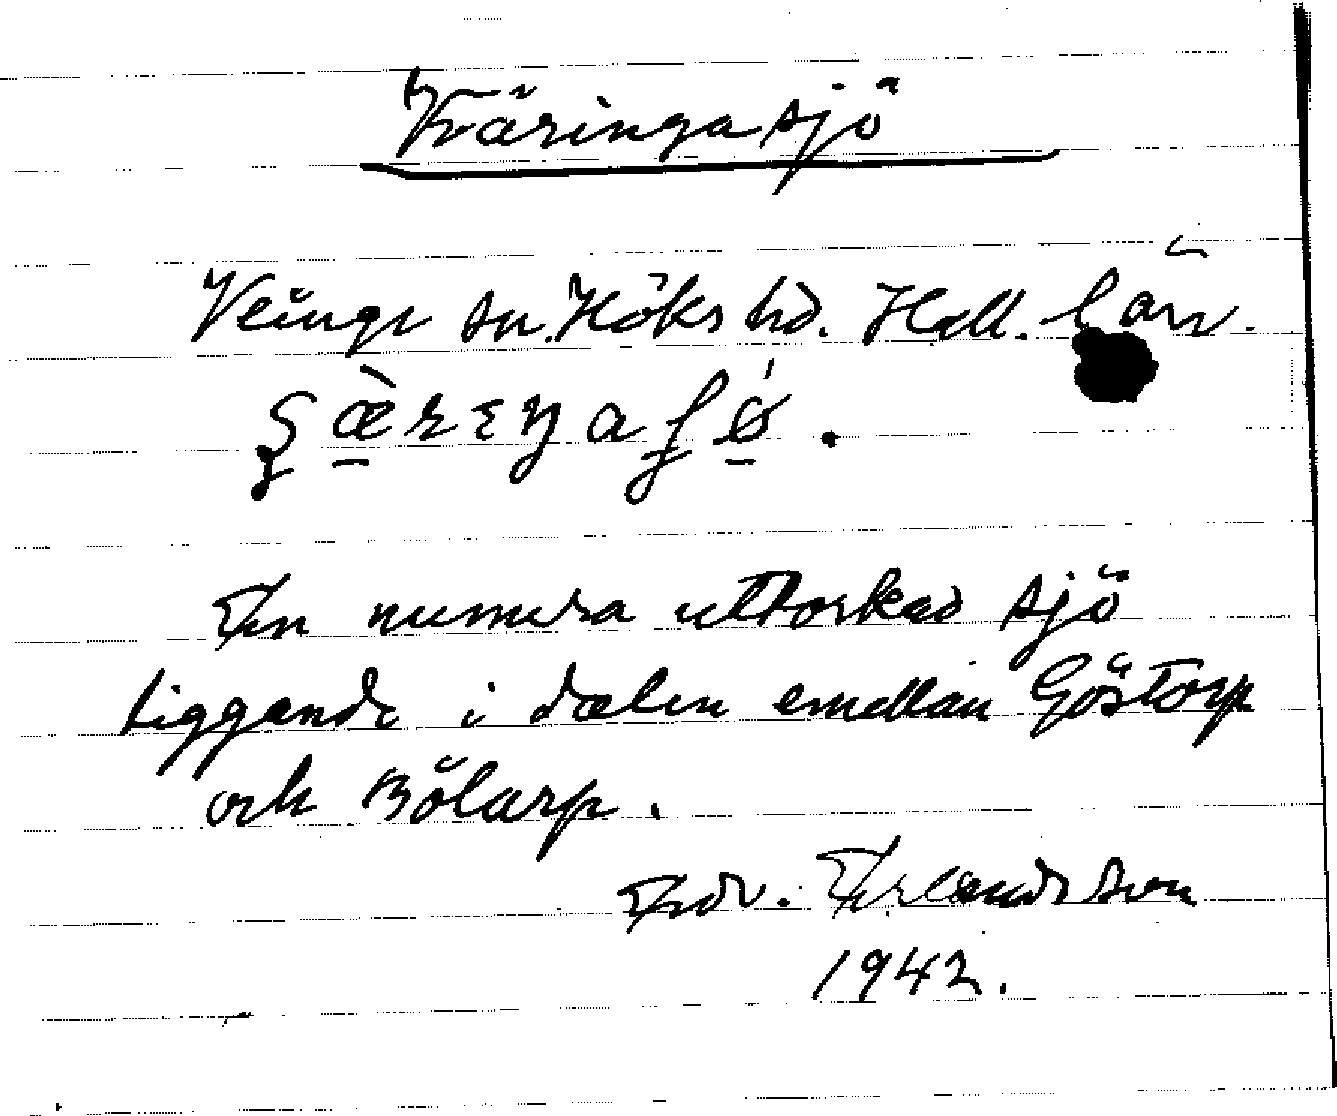 Käringasjö
Veinge sn. Höks hd. Hall. län.
çæ̀rɩŋaʃǿ.
En numera uttorkad sjö
liggande i dalen emellan Göstorp
och Bölarp.
Edv. Erlandsson
1942.